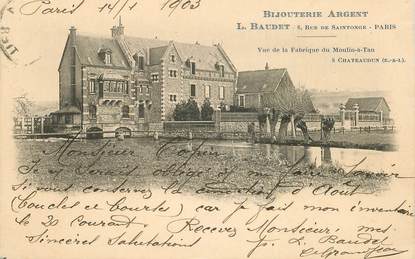 Paris 14/1 1903
BIJOUTERIE ARGENT
L. BAUDET - 8, RUE DE SAINTONGE - PARIS
Vue de la Fabrique du Moulin-à-Tan
à CHATEAUDUN (E.-&-L.)
Monsieur
Je vous serais obligé de me faire savoir
si vous conservez la d'Aout
(Boucles et Courbes) car je fais mon inventaire
le 20 courant. Recevez Monsieur, mes
Sincères Salutations
p. L. Baudet